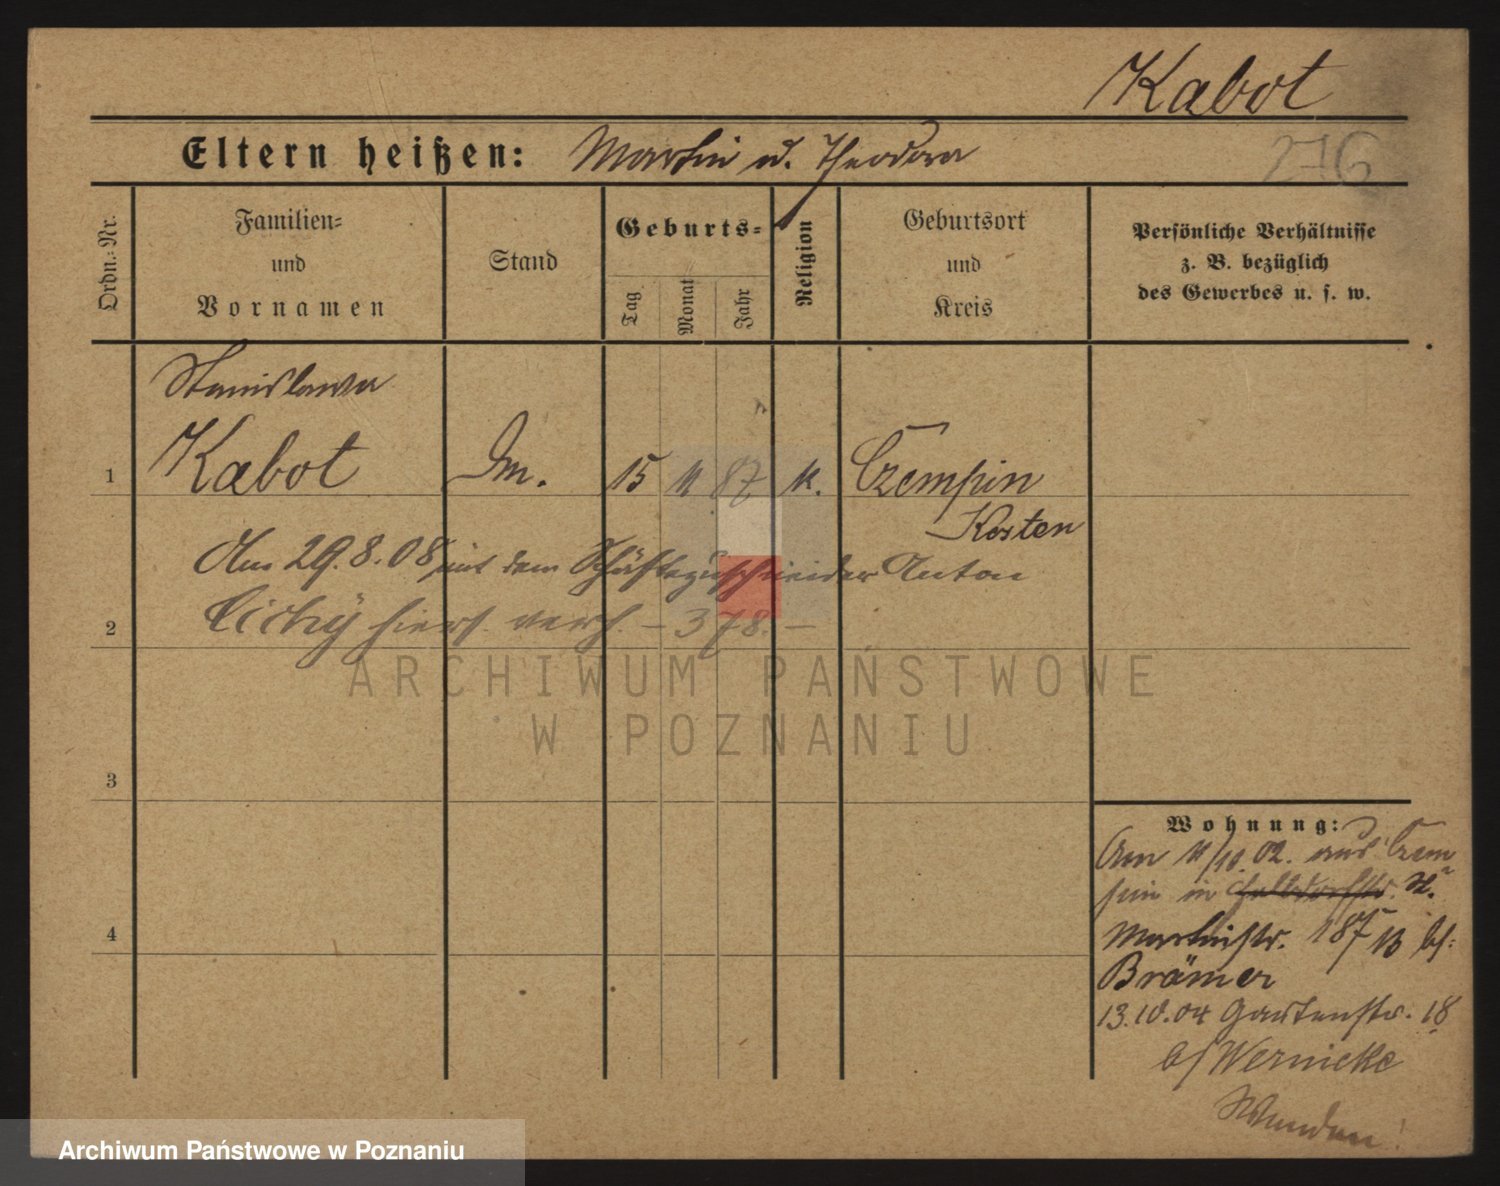 Kabot
Eltern heißen: Martin u. Theodora
276
Ordn.-Nr.
Familien-
und
Vornamen
Stand
Geburts-
Tag
Monat
Jahr
Religion
Geburtsort
und
Kreis
Persönliche Verhältnisse
z. B. bezüglich
des Gewerbes u. s. w.
Stanislawa
1 Kabot 15 87 k. Czempin
Kosten
Am 29.8.08 mit dem Schäftezuschneider Anton
2 Cichy hiers. verh. – 378. –
ARCHIWUM PAŃSTWOWE
W POZNANIU
3
4
Wohnung:
Am 11/10.02. aus Czem
pin in St.
Martinstr. b/:
Brämer
13.10.04 Gartenstr. 18
b/ Wernicke
Archiwum Państwowe w Poznaniu